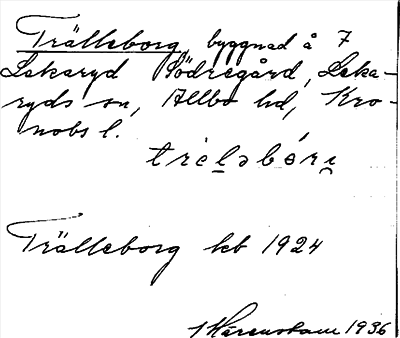 Trälleborg, byggnad å 7
Lekaryd Södregård, Leka-
ryds sn, Allbo hd, Kro-
nobs l.
Trälleborg kb 1924
1936